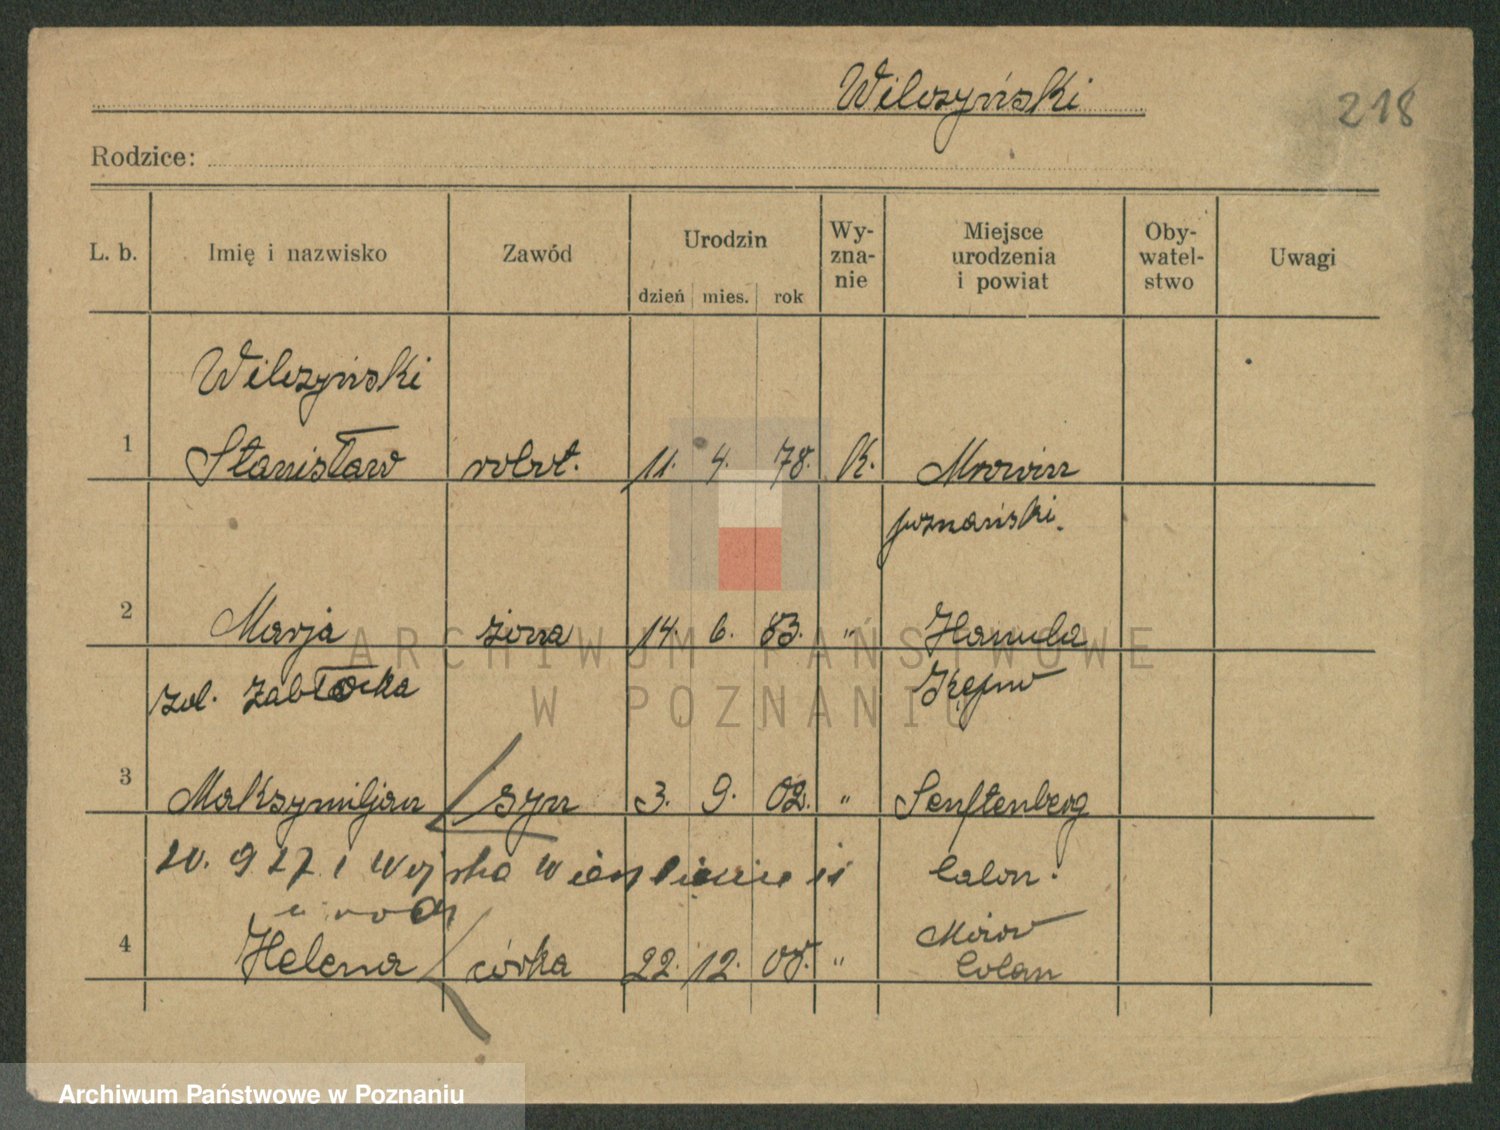 Wilczyński
218
Rodzice:
L. b. Imię i nazwisko Zawód Urodzin dzień mies. rok Wy-zna-nie Miejsce urodzenia i powiat Oby-watel-stwo Uwagi
Wilczyński
1 Stanisław robot. 11. 4. 78. K. Mrowin
poznański.
2 Marja żona 14. 6. 83. " Hanula
zol. Zabłocka Kępno
3 Maksymiljan syn 3. 9. 02. " Senftenberg
20. 9 27 Calon.
4 Helena córka 22. 12. 08. "
ARCHIWUM PAŃSTWOWE
W POZNANIU
Archiwum Państwowe w Poznaniu